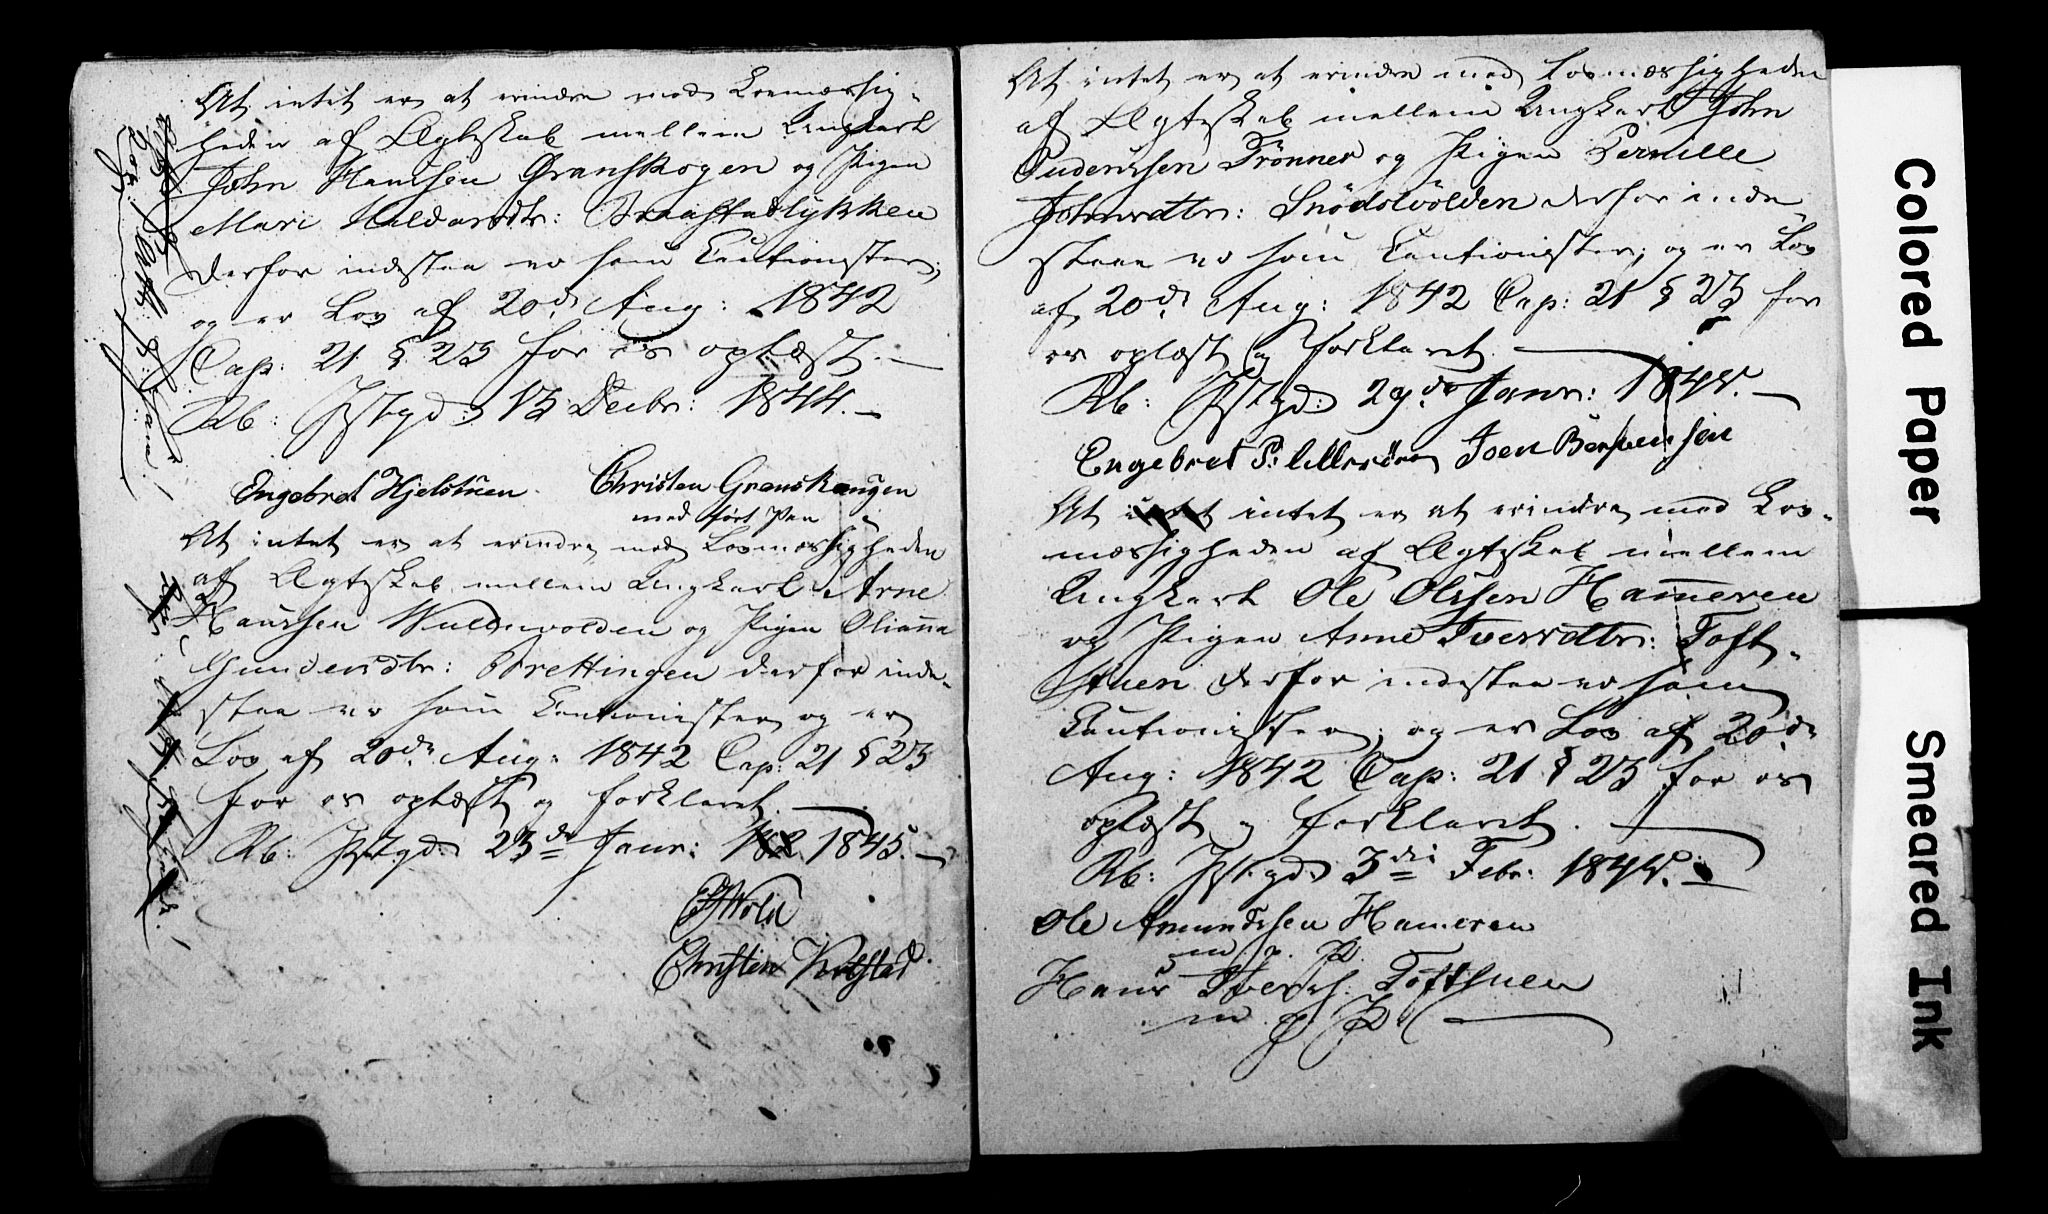 At intet er at erindre mod Lovmæssig-
heden af Ægteskab mellem Ungkarl
John Hansen Granskogen og Pigen
Mari Haldorsdtr: Braastadlykken
derfor indestaa vi som Cautionister;
og er Lov af 20de Aug: 1842
Cap: 21 § 23 for os oplæst.
Rb: Pstgd: 13 Decbr: 1844.
Engebret Hjelstuen. Christen Granskougen
med ført Pen
At intet er at erindre mod Lovmæssigheden
af Ægteskab mellem Ungkarl Arne
Haussen og Pigen Olianna
Gundersdtr: Brettingen derfor inde-
staa vi som Cautionister og er
Lov af 20de Aug: 1842 Cap: 21 § 23
for os oplæst og forklaret.
Rb: Pstgd: 23de Janr: 1845.
Christen
At intet er at erindre mod Lovmæssigheden
af Ægteskab mellem Ungkarl John
Trönnes og Pigen Pernille
Johnsdtr: Snödolvolden derfor inde-
staae vi som Cautionister, og er Lov
af 20de Aug: 1842 Cap: 21 § 23 for
os oplæst og forklaret.
Rb: Pstgd: 29de Janr: 1845.
Engebret P: Lilleröen Joen
At intet er at erindre mod Lov-
mæssigheden af Ægteskab mellem
Ungkarl Ole Olssen Hameren
og Pigen Anne Iversdtr: Toft-
stuen derfor indestaa vi som
Cautionister, og er Lov af 20de
Aug: 1842 Cap: 21 § 23 for os
oplæst og forklaret.
Rb: Pstgd: 3die Febr: 1845.
Ole Amundssen Hameren
m. p. P.
Hans Ivers. Toftstuen
m. p. P.
Colored Paper
Smeared Ink